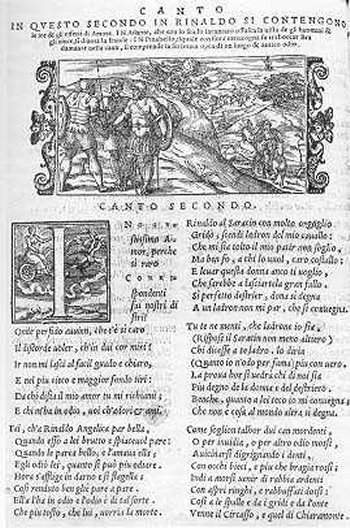 CANTO
IN QVESTO SECONDO IN RINALDO SI CONTENGONO
le ire & gli effetti di Amore. IN Atlante, che con lo scudo incantato offusca la vista de gli huomini &
gli vince, si dinota la fraude: IN Pinabello, ilquale con menzogna fa traboccar Bra
damante nella caua, si comprende la scelerata opera di un luogo de antico odio.
CANTO SECONDO.
INgiu
stissimo A-
mor, perche
si raro
Corri-
spondenti
fai nostri di
siri?
Onde perfido auuien, che t'è si caro
Il discorde uoler, ch'in dui cor miri?
Ir non mi lasci al facil guado e chiaro,
E nel piu cieco e maggior fondo tiri:
Da chi disia il mio amor tu mi richiami;
E chi m'ha in odio, uoi ch'adori & ami.
Fai, ch'a Rinaldo Angelica par bella,
Quando esso a lei brutto e spiaceuol pare:
Quando le parea bello, e l'amaua ella;
Egli odiò lei, quanto si può piu odiare.
Hora s'affligge in darno e si flagella;
Così renduto ben gli è pare a pare.
Ella l'ha in odio e l'odio è di tal sorte,
Che piu tosto, che lui, uorria la morte.
Rinaldo al Saracin con molto orgoglio
Gridò, scendi ladron del mio cauallo:
Che mi sia tolto il mio patir non soglio,
Ma ben fo, a chi lo uuol, caro costallo:
E leuar questa donna anco ti uoglio;
Che sarebbe a lasciartela gran fallo.
Sì perfetto destrier, dona sì degna
A un ladron non mi par, che si conuegna.
Tu te ne menti, che ladrone io sia,
(Rispose il Saracin non meno altiero)
Chi dicesse a te ladro, lo diria
(Quanto io n'odo per fama) piu con uero.
La proua hor si uedrà chi di noi sia
Piu degno de la donna e del destriero.
Benche, quanto a lei teco io mi conuegna;
Che non è cosa al mondo altra sì degna.
Come soglion talhor dui can mordenti,
O per inuidia, o per altro odio mossi,
Auicinarsi digrignando i denti,
Con occhi bieci, e piu che bragia rossi;
Indi a morsi uenir di rabbia ardenti
Con aspri ringhi, e rabbuffati dossi:
Così a le spade e da i gridi e da l'onte
Venne il Circasso, e quel di Chiaramonte.